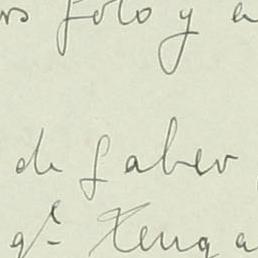 solo y a
de saber
qe. Tenga